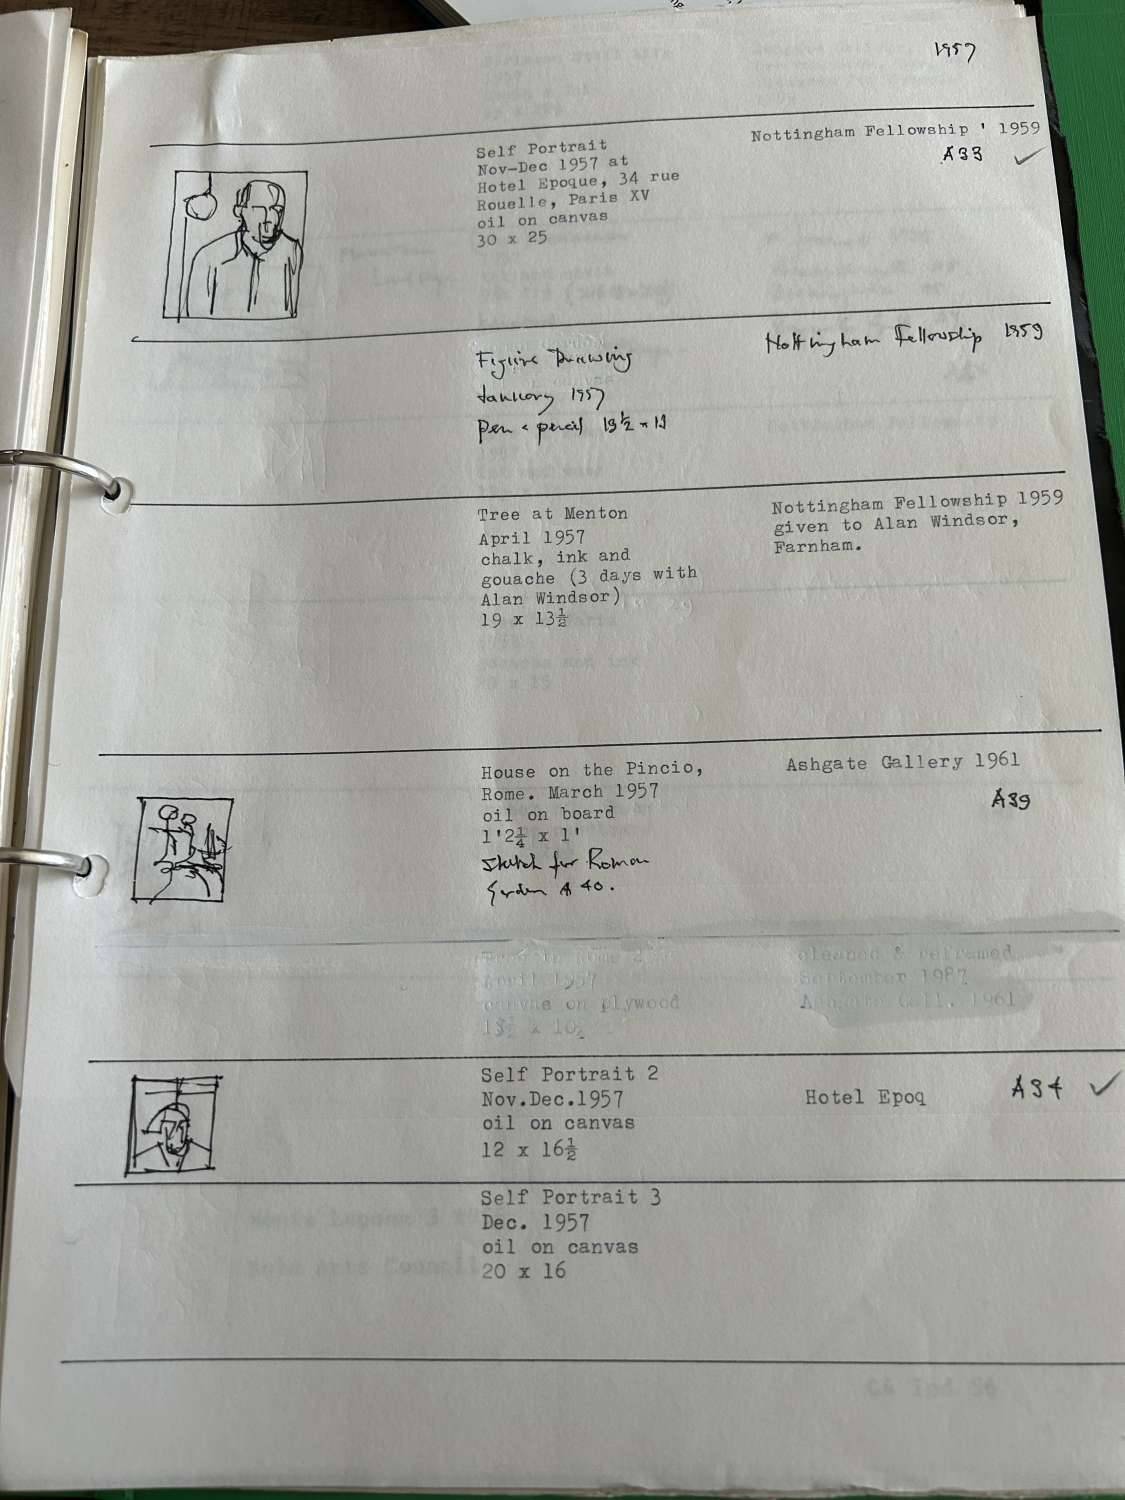 1957
Self Portrait
Nov-Dec 1957 at
Hotel Epoque, 34 rue
Rouelle, Paris XV
oil on canvas
30 x 25
Nottingham Fellowship ' 1959
A33 ✓
Figure Drawing
January 1957
Pen & pencil 19½ x 13
Nottingham Fellowship 1959
Tree at Menton
April 1957
chalk, ink and
gouache (3 days with
Alan Windsor)
19 x 13½
Nottingham Fellowship 1959
given to Alan Windsor,
Farnham.
House on the Pincio,
Rome. March 1957
oil on board
1'2¼ x 1'
sketch for Roman
Garden A 40.
Ashgate Gallery 1961
A39
April 1957
canvas on plywood
cleaned & reframed
September 1987
Ashgate Gall. 1961
Self Portrait 2
Nov.Dec.1957
oil on canvas
12 x 16½
Hotel Epoq
A34 ✓
Self Portrait 3
Dec. 1957
oil on canvas
20 x 16